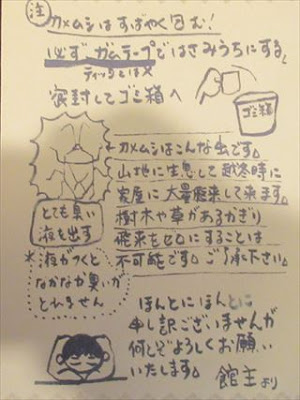 注 カメムシはすばやく包む!
必ず ガムテープではさみうちにする。
ティッシュは×
密封してゴミ箱へ
ゴミ箱
カメムシはこんな虫です。
山地に生息して越冬時に
家屋に大量飛来して来ます。
樹木や草があるかぎり
飛来をゼロにすることは
不可能です。ご了承下さい。
とても臭い
液を出す
*液がつくと
なかなか臭いが
とれません
ほんとにほんとに
申し訳ございませんが
何とぞよろしくお願い
いたします。
館主より